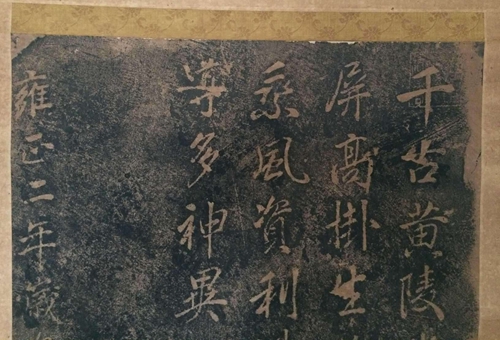 千古黄陵
屏高掛生
乘風資利
学多神異
雍正二年歲